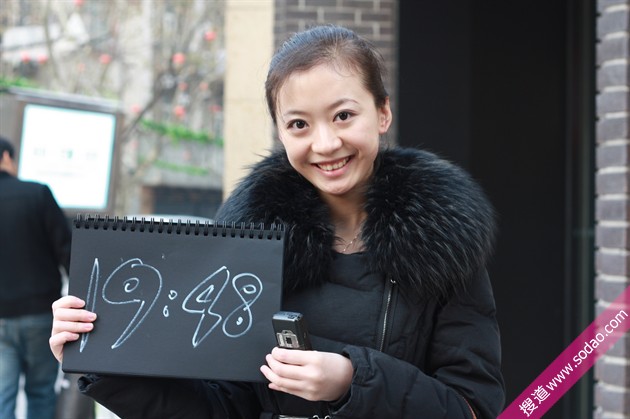 19:48
搜道 www.sodao.com